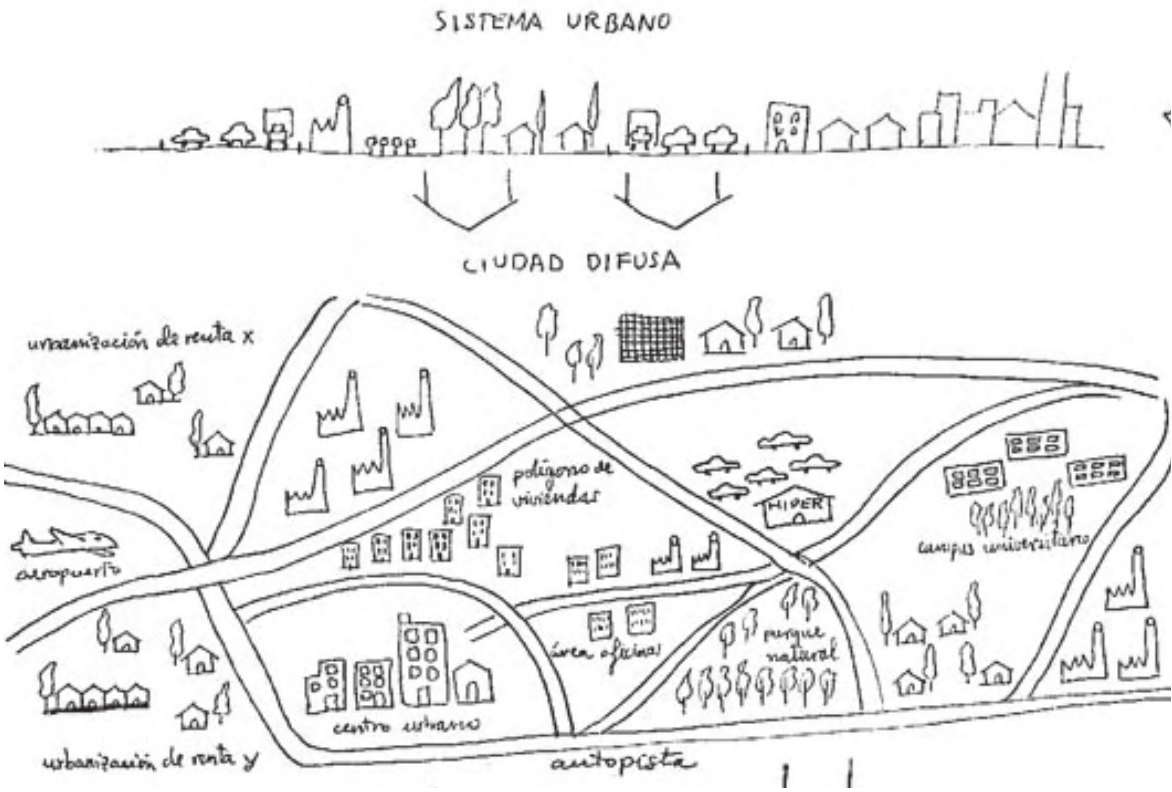 SISTEMA URBANO
CIUDAD DIFUSA
urbanización de renta x
polígono de
viviendas
HIPER
campus universitario
aeropuerto
parque
natural
área oficinas
centro urbano
urbanización de renta y
autopista